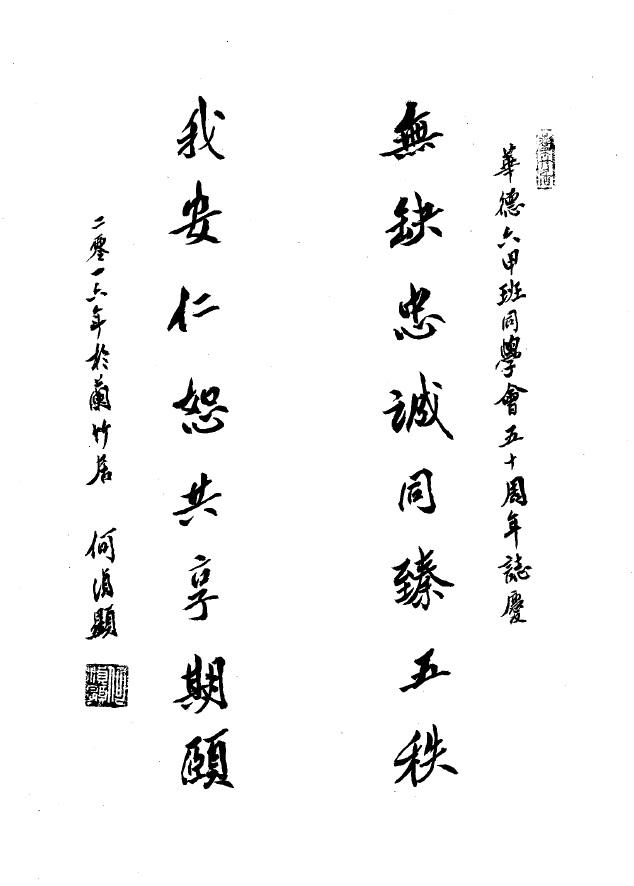 華德六甲班同學會五十周年誌慶
無缺忠誠同臻五秩
我安仁恕共享期頤
二零一六年於蘭竹居 何顯